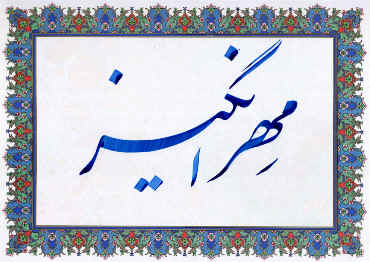 مهرانگیز